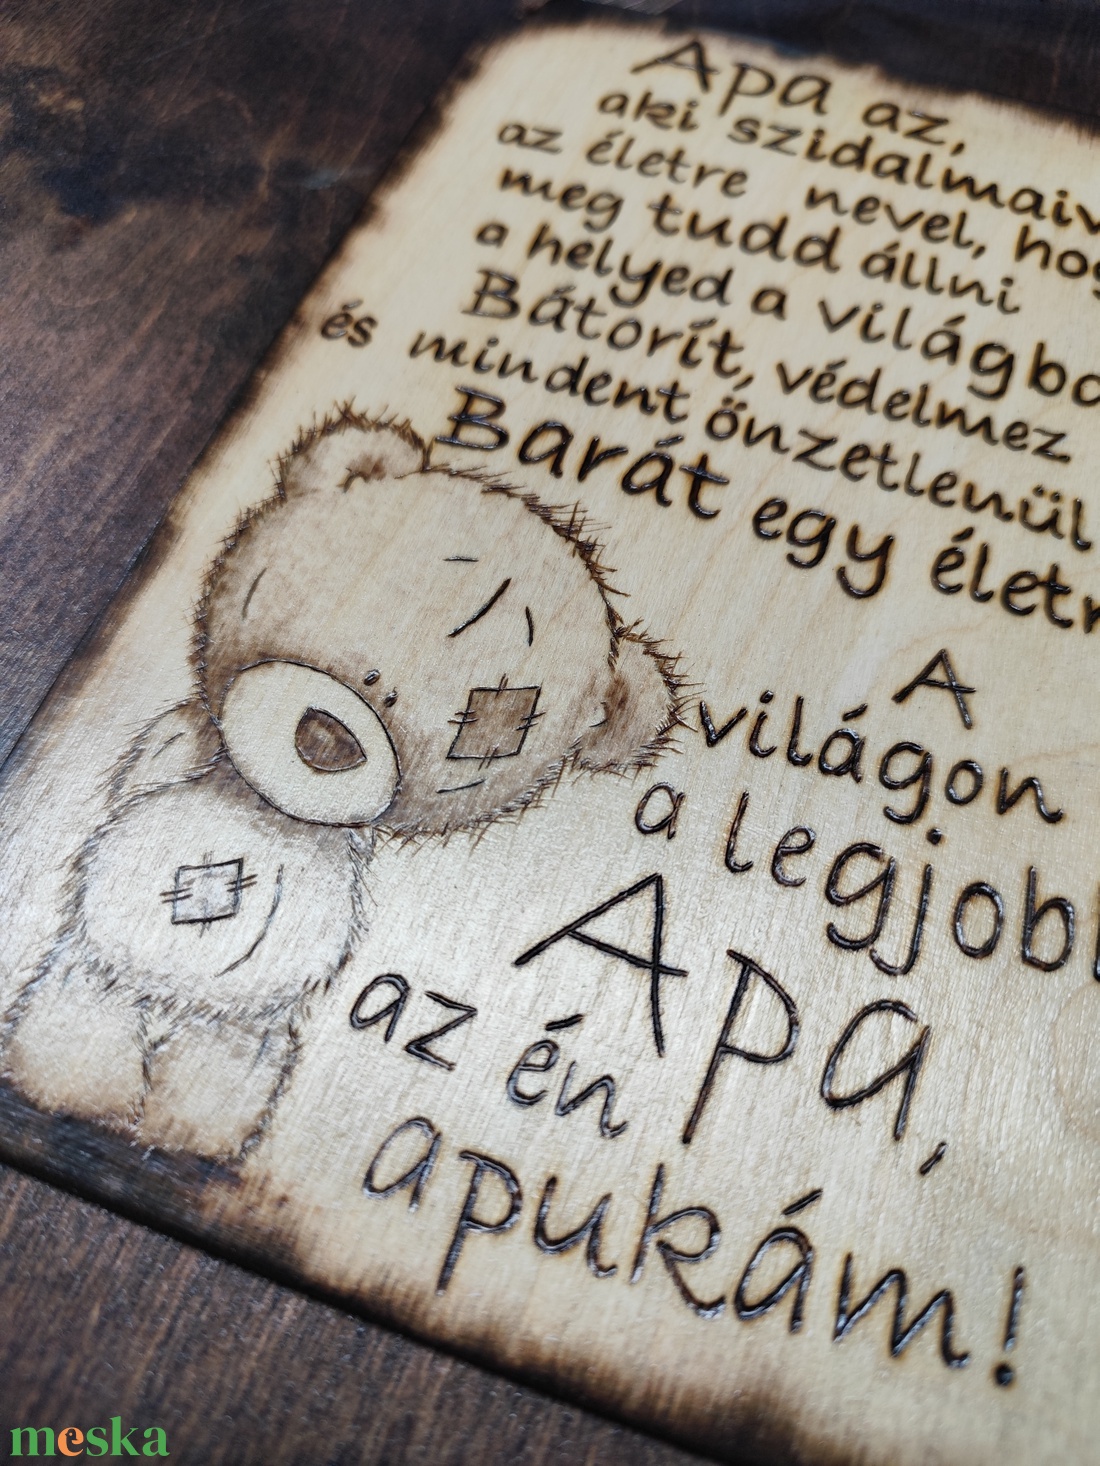 Apa az,
aki szidalmaiv
az életre nevel, hog
meg tudd állni
a helyed a világbo
Bátorít, védelmez
és mindent önzetlenül
Barát egy életr
A
világon
a legjobb
Apa,
az én
apukám!
meska